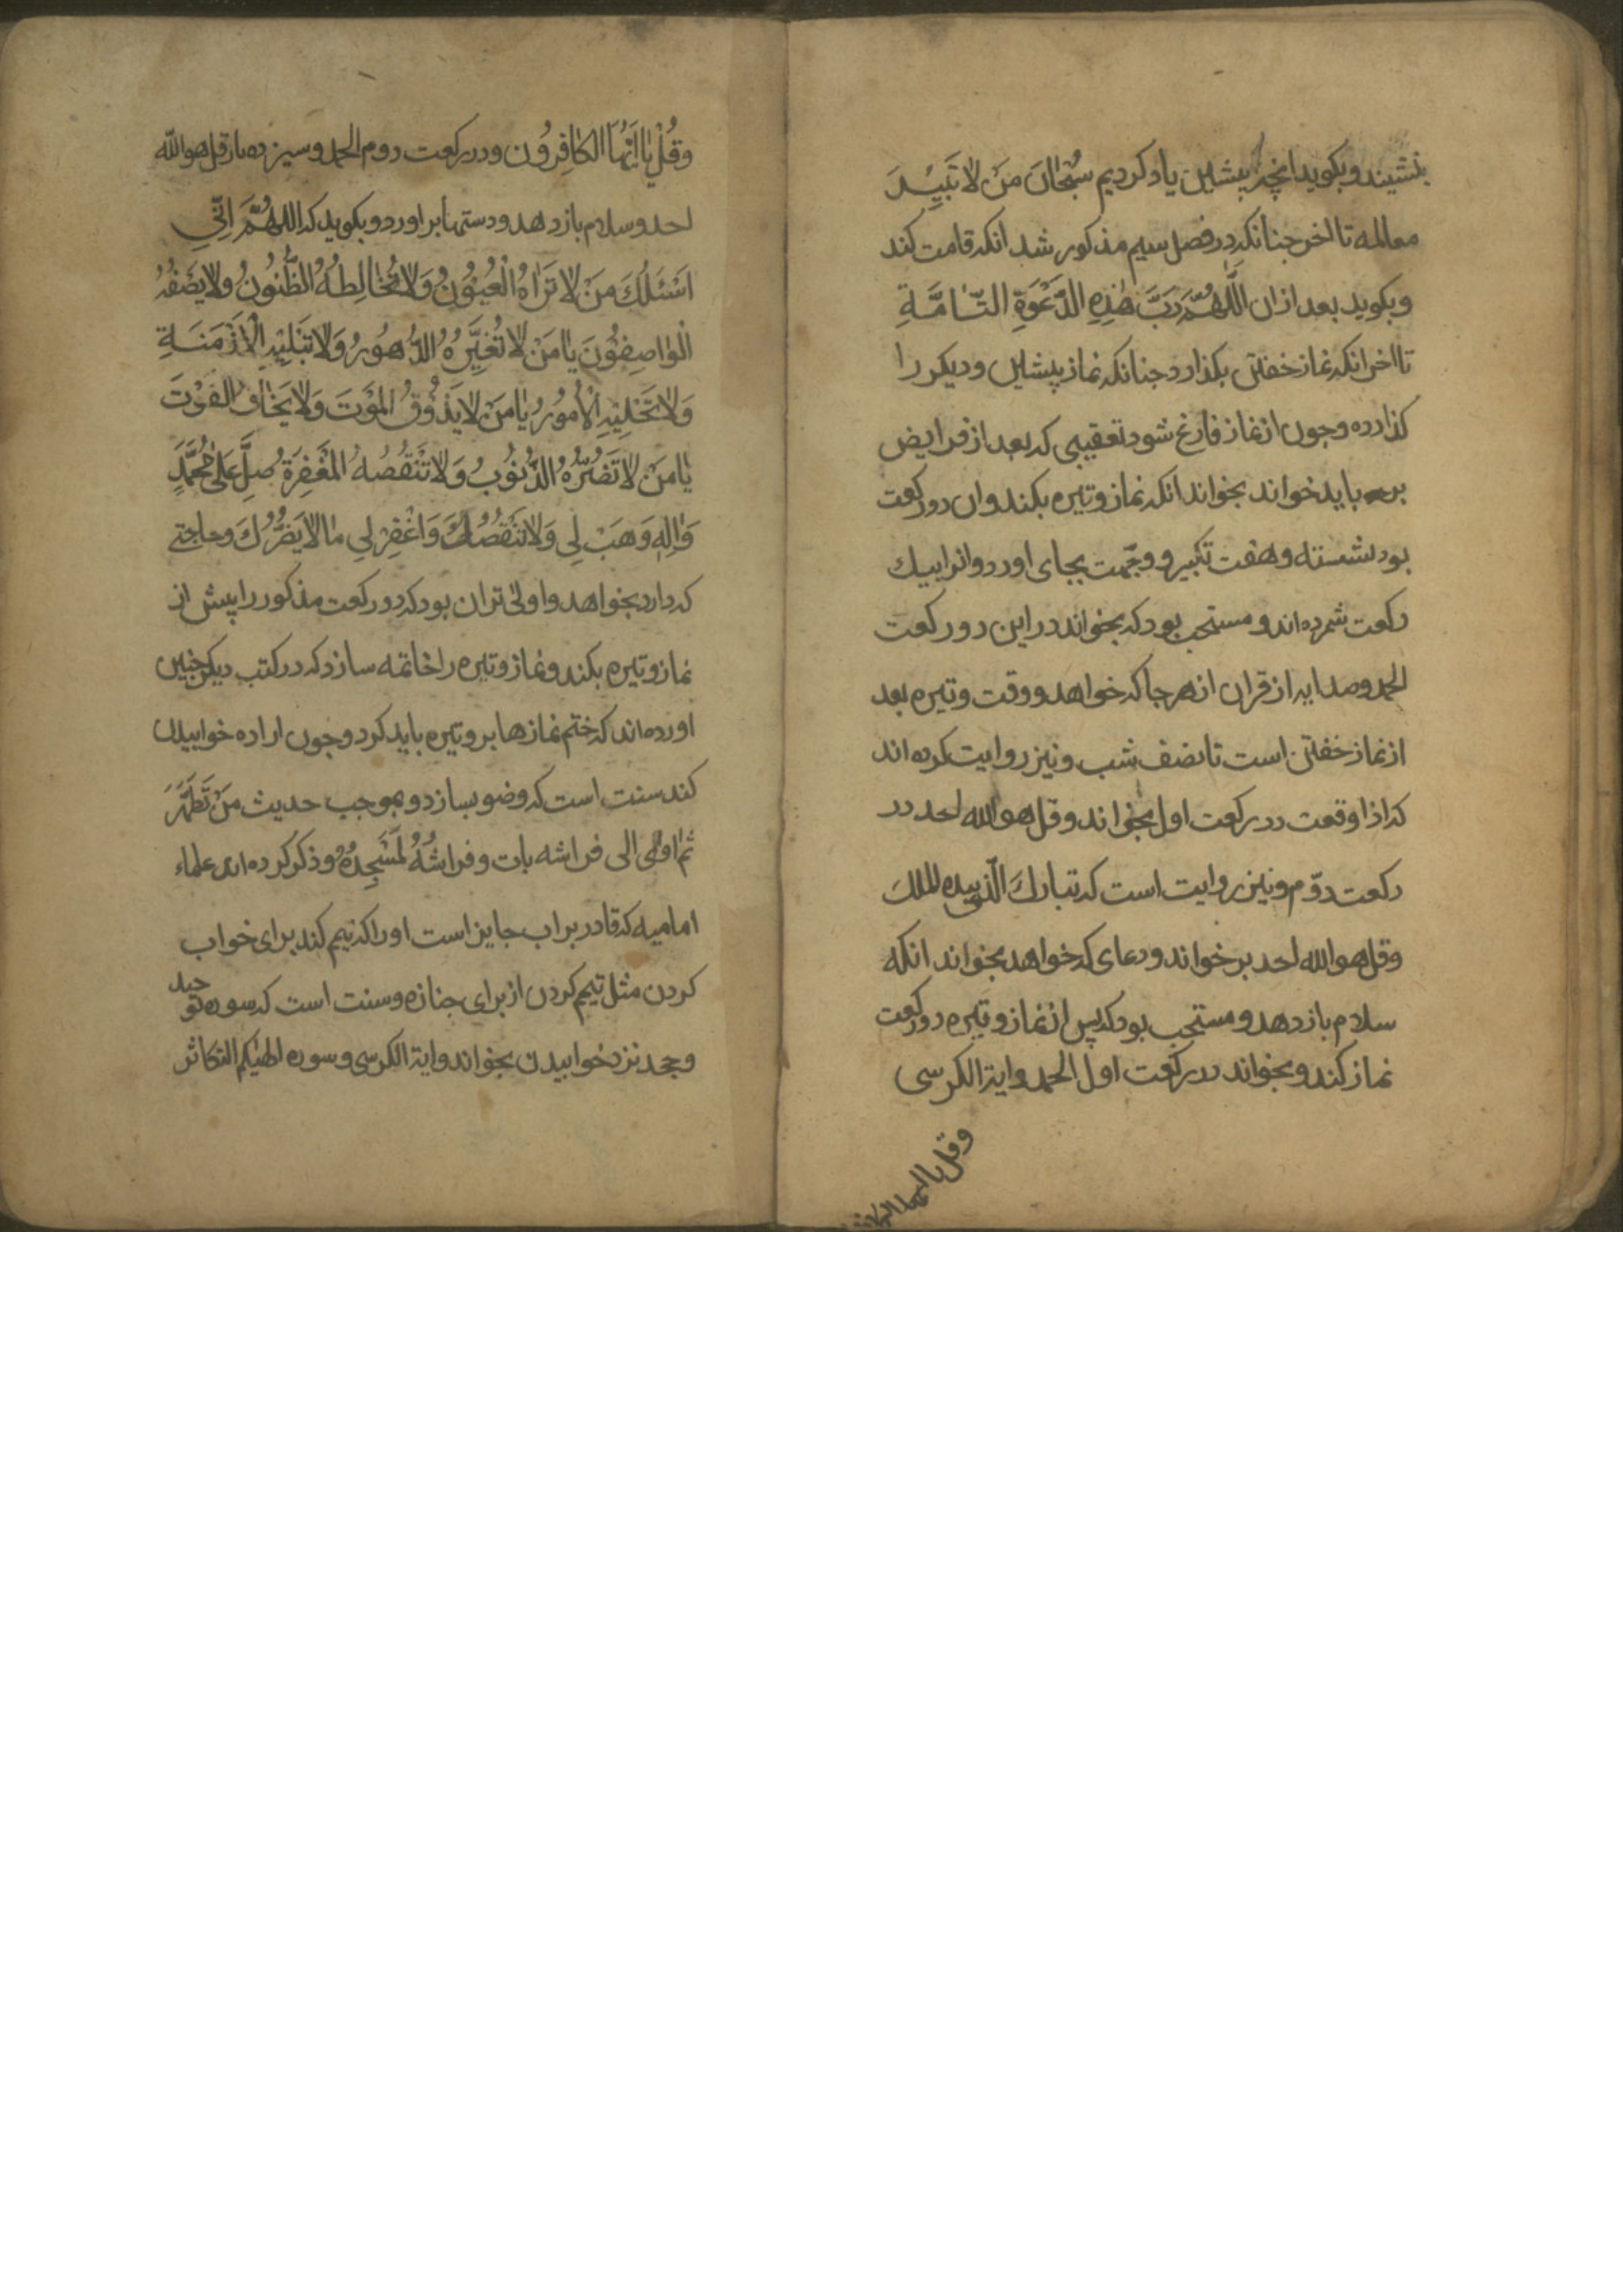 بنشیند و بکوید انچه پیشین یاد کردیم سُبْحَانَ مَنْ لَا تَبِیْدَ
معالمه تا اخر جنانکه در فصل سیم مذکور شد انکه قامت کند
و بکوید بعد از ان اَللّٰهُمَّ رَبَّ هٰذِهِ الدَّعْوَةِ التَّامَّةِ
تا اخر انکه نماز خفتن بکذارد جنانکه نماز پیشین و دیکر را
کذارده و جون از نماز فارغ شود تعقیبی که بعد از فرایض
باید خواند بخواند انکه نماز وتیره بکند و ان دو رکعت
بود نشسته و هفت تکبیر و وجّهت بجای اورد و انرا بیك
رکعت شمرده اند و مستحب بود که بخواند در این دو رکعت
الحمد و صد ایه از قران از هر جا که خواهد و وقت وتیره بعد
از نماز خفتن است تا نصف شب و نیز روایت کرده اند
که اذا وقعت در رکعت اول بخواند و قل هو الله احد در
رکعت دوّم و نیز روایت است که تبارك الّذی بیده الملك
و قل هو الله احد بر خواند و دعای که خواهد بخواند انکه
سلام باز دهد و مستحب بود که پس از نماز وتیره دو رکعت
نماز کند و بخواند در رکعت اول الحمد و ایة الکرسی
و قل یا ایها الکافرون
وَقُلْ یَا اَیُّهَا الکَافِرُون و در رکعت دوم الحمد و سیزده بار قل هو الله
احد و سلام باز دهد و دستها بر اورد و بکوید که اللهُمَّ اِنِّی
اَسْئَلُكَ مَنْ لَا تَرَاهُ الْعُیُوْنُ وَلَا تُخَالِطُهُ الظُّنُونُ وَلَا یَصِفُهُ
الْوٰاصِفُوْنَ یٰا مَنْ لَا تُغَیِّرُهُ الدُّهُورُ وَلَا تبْلِیْهِ الْاَزْمَنَةِ
وَلَا تحِیْلِیْهِ الْاُمُورُ یٰا مَنْ لَا یَذُوْقُ المَوْتَ وَلَا یَخٰافُ الفَوْتَ
یٰا مَنْ لَا تَضُرُّهُ الذُّنُوْبُ وَلَا تَنْقُصُهُ المَغْفِرَةُ صَلِّ عَلٰی مُحَمَّدٍ
وَاٰلِهِ وَهَبْ لِی مَا لَا تَنْقُصُكَ وَاغْفِرْ لِی مٰا لَا یَضُرُّكَ و حاجتی
که دارد بخواهد و اولی تر ان بود که دو رکعت مذکور را پیش از
نماز وتیره بکند و نماز وتیره را خاتمه سازد که در کتب دیکر جنین
اورده اند که ختم نمازها بر وتیره باید کرد و جون اراده خوابیدن
کند سنت است که وضو بسازد و بموجب حدیث مَنْ تَطَهَّرَ
ثم اوٰی الی فراشه بات و فراشُهُ کَمَسْجِدِهُ و ذکر کرده اند علماء
امامیه که قادر بر اب جایز است او را که تیمم کند برای خواب
کردن مثل تیمم کردن از برای جنازه و سنت است که سوره توحید
و جحد نزد خوابیدن بخواند و ایة الکرسی و سوره الهٰیکم التکاثر